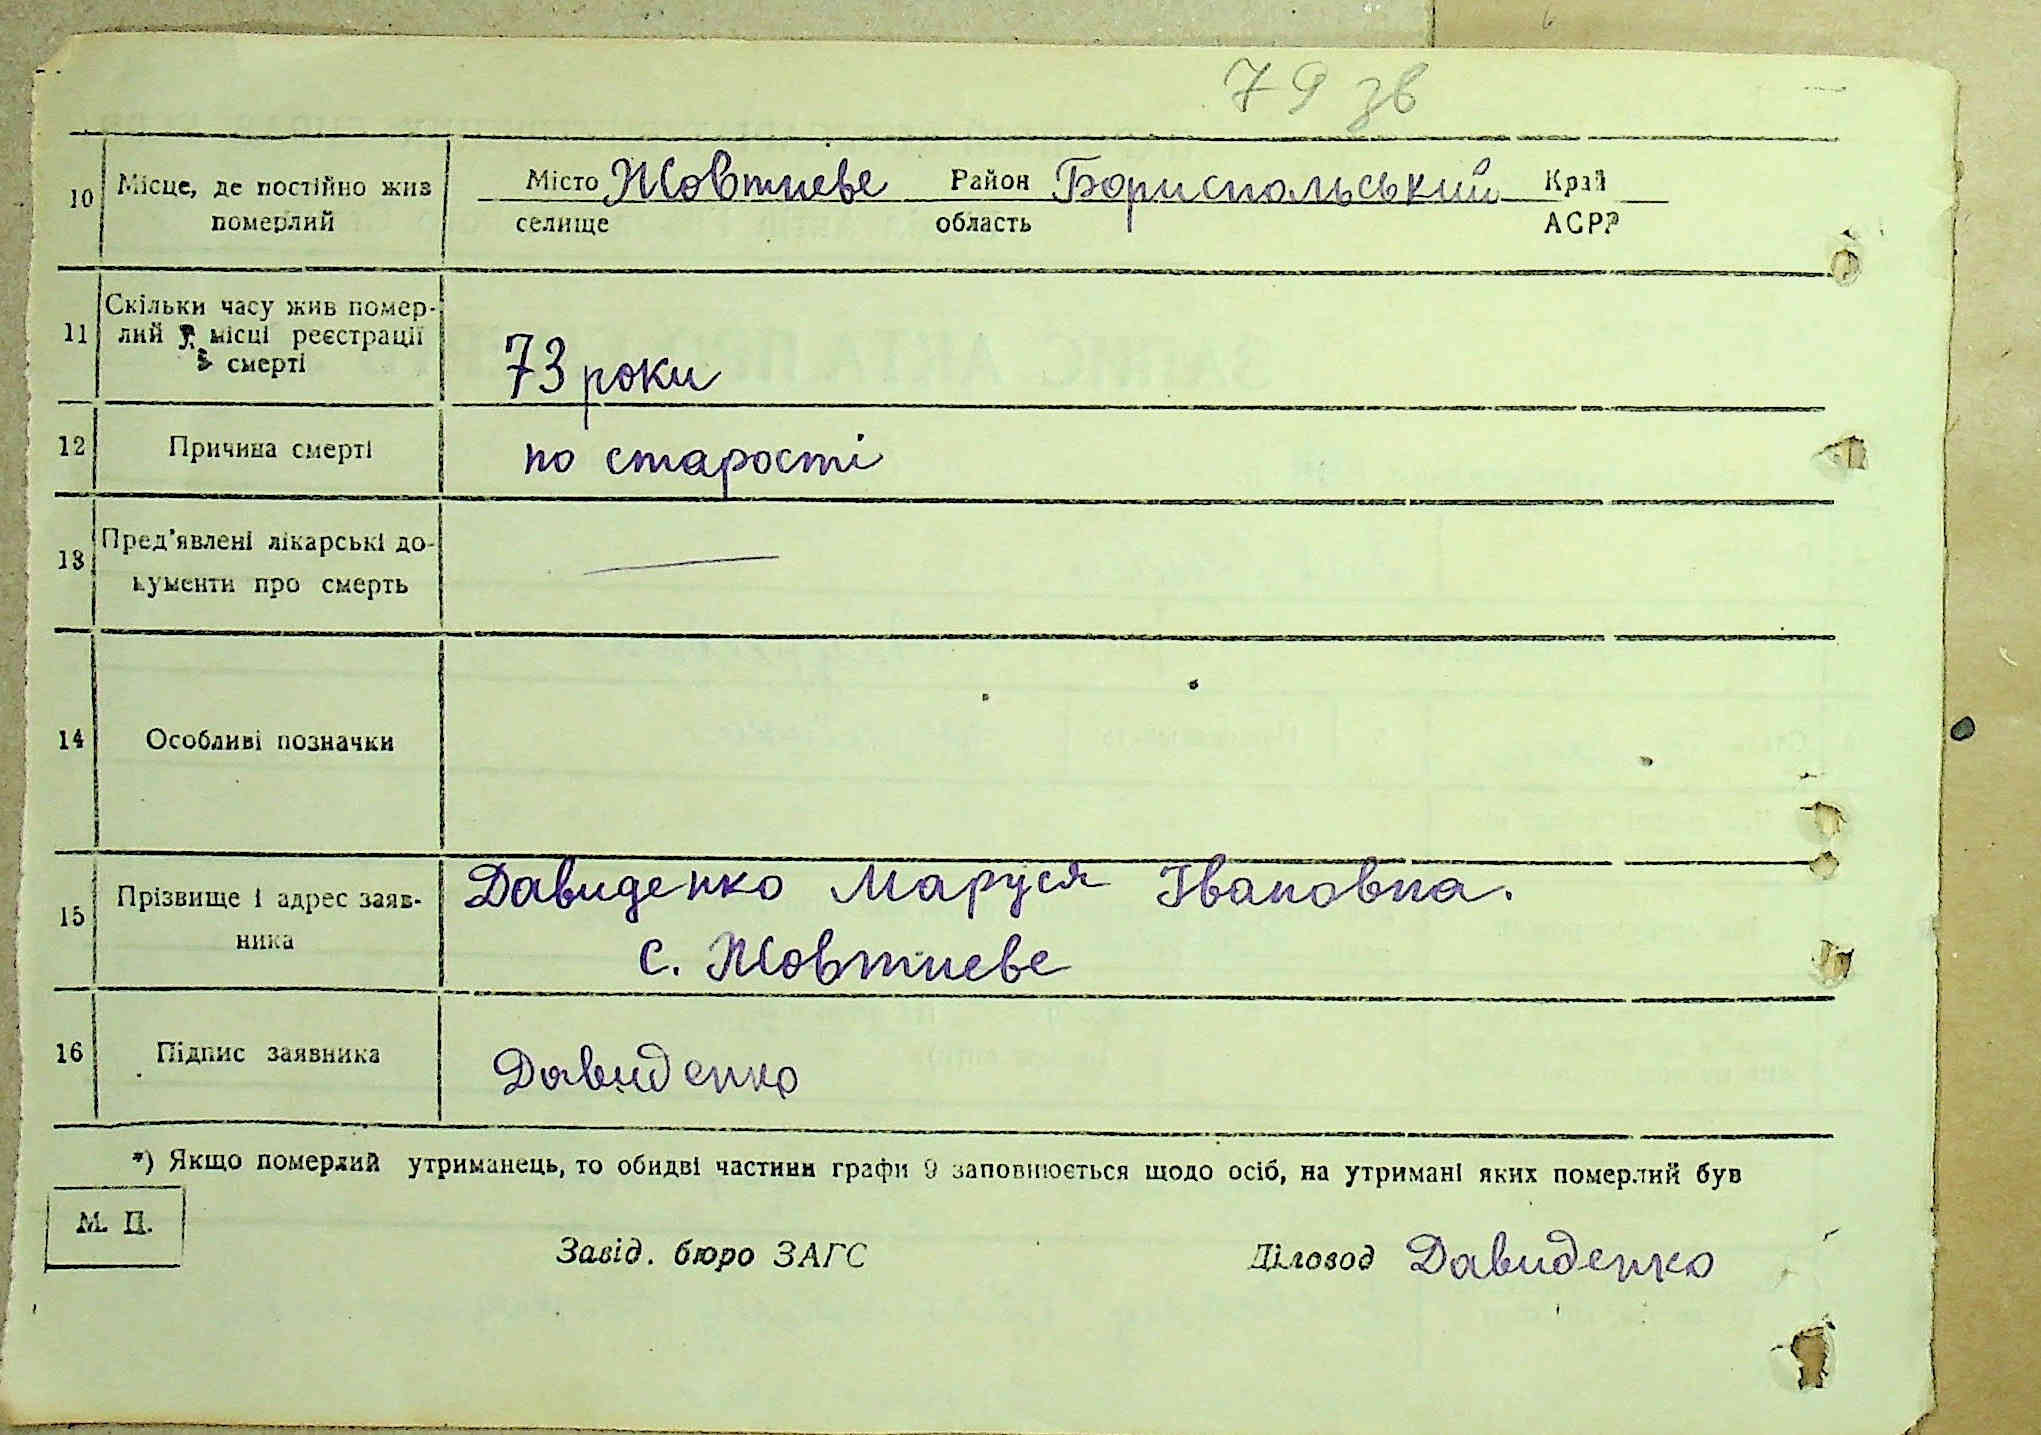 79 зв
10 Місце, де постійно жив Місто Жовтневе Район Бориспольський Край
померлий селище область АСРР
Скільки часу жив помер-
11 лий у місці реєстрації
смерті 73 роки
12 Причина смерті по старості
13 Пред'явлені лікарські до-
кументи про смерть
14 Особливі позначки
15 Прізвище і адрес заяв- Давиденко Маруся Івановна.
ника с. Жовтневе
16 Підпис заявника Давиденко
*) Якщо померлий утриманець, то обидві частини графи 9 заповнюється щодо осіб, на утримані яких померлий був
М. П.
Завід. бюро ЗАГС Діловод Давиденко